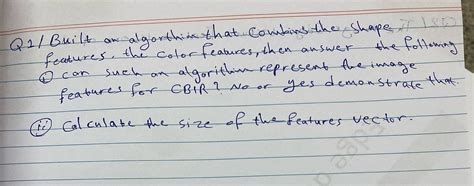 Q2/ Built an algorthim that Combins the shape
features, the Color features, then answer the following
① can such an algorithm represent the image
features for CBIR? No or yes demonstrate that.
(ii) Calculate the size of the features vector.